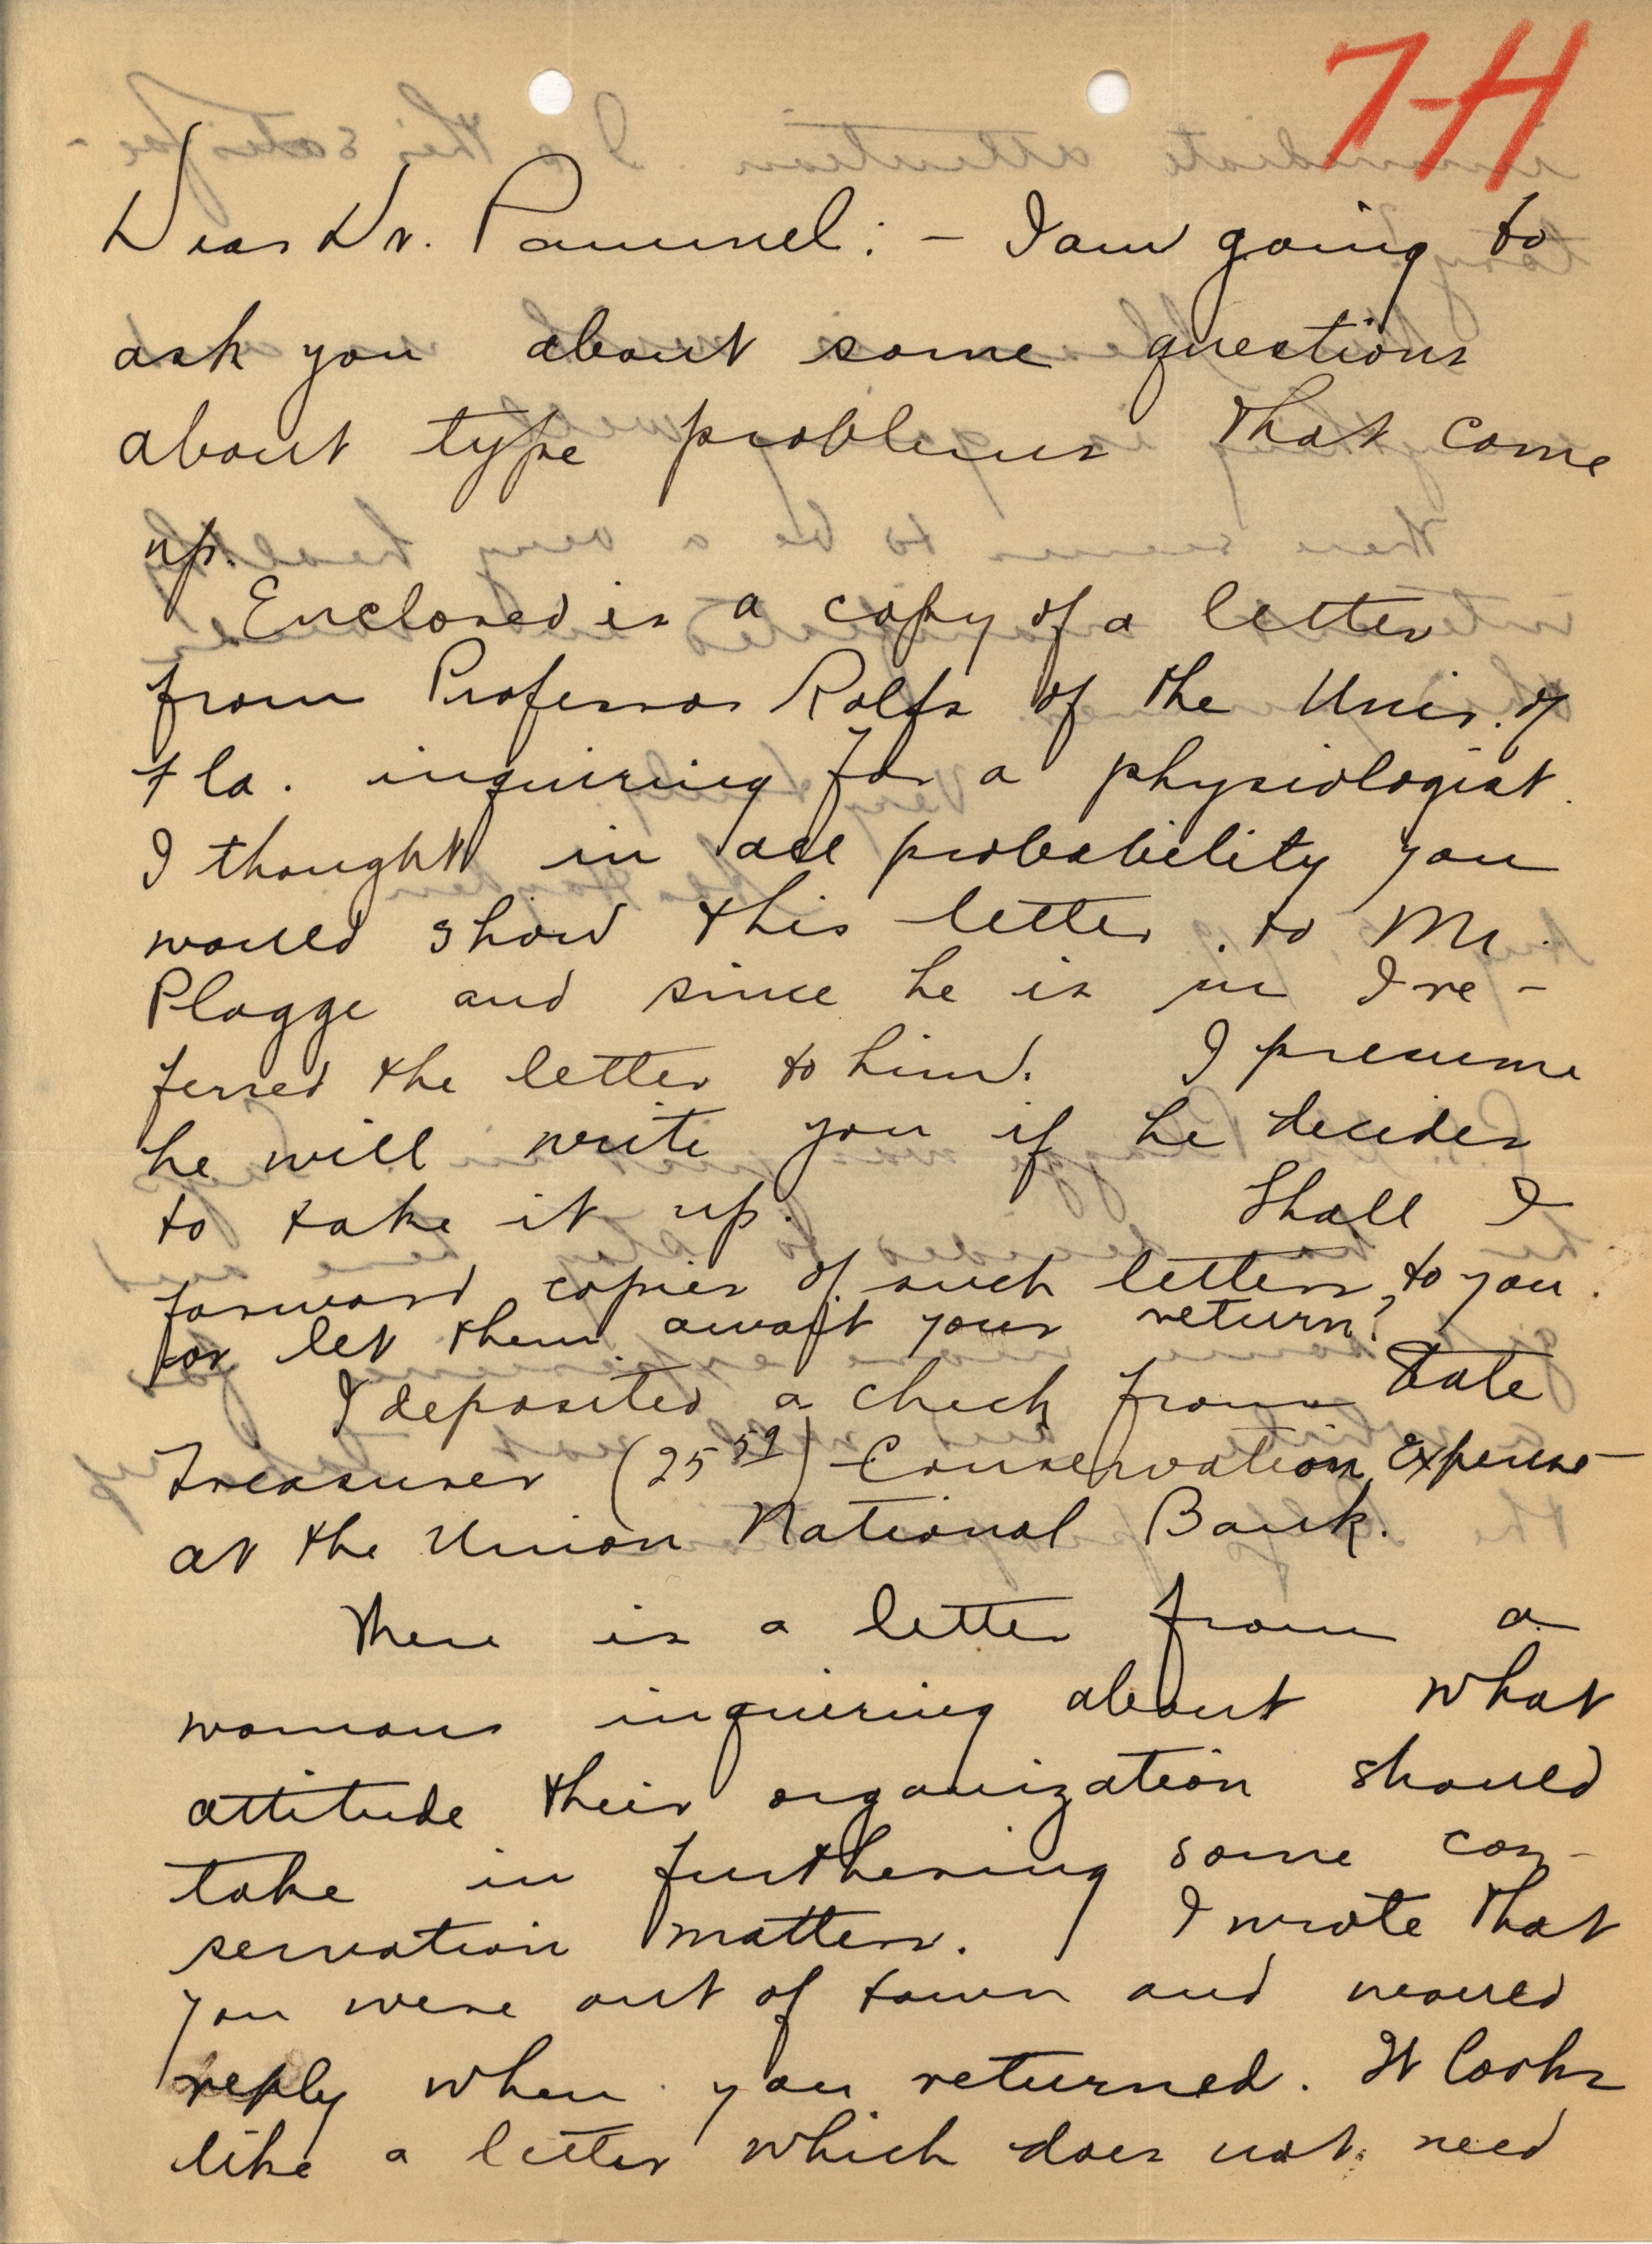 7-H
Dear Dr. Pammel: - I am going to
ask you about some questions
about type problems that come
up.
Enclosed is a copy of a letter
from Professor Rolfs of the Univ. of
Fla. inquiring for a physiologist.
I thought in all probability you
would show this letter to Mr.
Plagge and since he is in I re-
ferred the letter to him. I presume
he will write you if he decides
to take it up. Shall I
forward copies of such letters to you
or let them await your return?
I deposited a check from State
Treasurer (25 59) Conservation Expense
at the Union National Bank.
There is a letter from a
womans inquiring about what
attitude their organization should
take in furthering some con-
servation matters. I wrote that
you were out of town and would
reply when you returned. It looks
like a letter which does not need